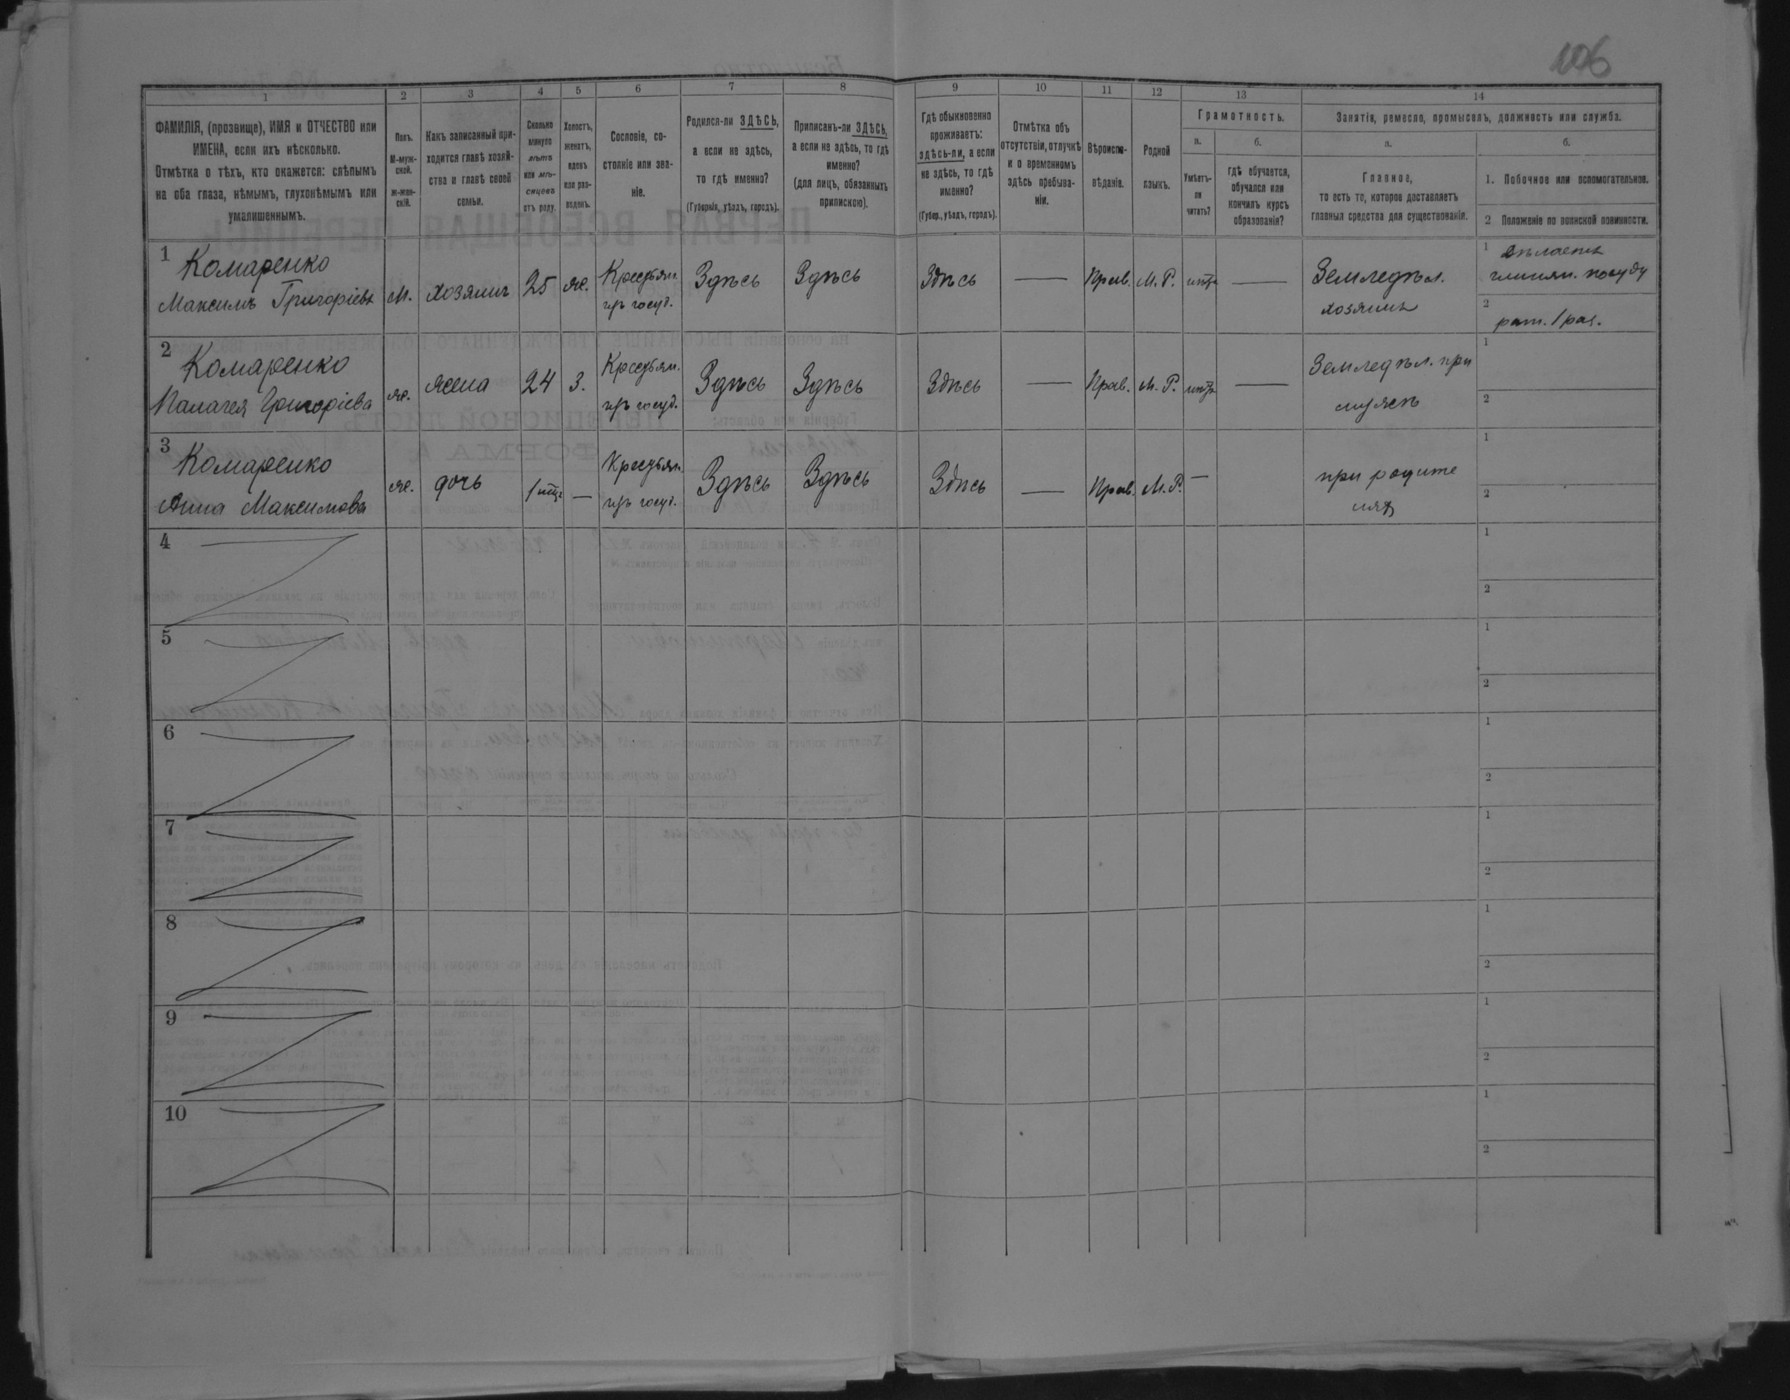 106
1
2
3
4
5
6
7
8
9
10
11
12
13
14
ФАМИЛІЯ, (прозвище), ИМЯ и ОТЧЕСТВО или
ИМЕНА, если ихъ нѣсколько.
Отмѣтка о тѣхъ, кто окажется: слѣпымъ
на оба глаза, нѣмымъ, глухонѣмымъ или
умалишеннымъ.
Полъ.
М-муж-
ской.
Ж-жен-
скій.
Какъ записанный при-
ходится главѣ хозяй-
ства и главѣ своей
семьи.
Сколько
минуло
лѣтъ
или мѣ-
сяцевъ
отъ роду.
Холостъ,
женатъ,
вдовъ
или раз-
веденъ.
Сословіе, со-
стояніе или зва-
ніе.
Родился-ли ЗДѢСЬ,
а если не здѣсь,
то гдѣ именно?
(Губернія, уѣздъ, городъ).
Приписанъ-ли ЗДѢСЬ,
а если не здѣсь, то гдѣ
именно?
(для лицъ, обязанныхъ
припискою).
Гдѣ обыкновенно
проживаетъ:
здѣсь-ли, а если
не здѣсь, то гдѣ
именно?
(Губер., уѣздъ, городъ).
Отмѣтка объ
отсутствіи, отлучкѣ
и о временномъ
здѣсь пребыва-
ніи.
Вѣроиспо-
вѣданіе.
Родной
языкъ.
Грамотность.
а.
Умѣетъ-
ли
читать?
б.
гдѣ обучается,
обучался или
кончилъ курсъ
образованія?
Занятіи, ремесло, промыселъ, должность или служба.
а.
Главное,
то есть то, которое доставляетъ
главныя средства для существованія.
б.
1. Побочное или вспомогательное.
2. Положеніе по воинской повинности.
1 Комаренко
Максимъ Григоріевъ
М.
хозяинъ
25
Же.
Крестьян.
изъ госуд.
Здѣсь
Здѣсь
Здѣсь
—
Прав.
М. Р.
нѣтъ
—
Земледѣл.
хозяинъ
1
глинян. посуду
2
рат. 1 раз.
2 Комаренко
Палагея Григоріева
же.
жена
24
З.
Крестьян.
изъ госуд.
Здѣсь
Здѣсь
Здѣсь
—
Прав.
М. Р.
нѣтъ
—
Земледѣл. при
мужѣ
1
2
3 Комаренко
Анна Максимова
же.
дочь
—
Крестьян.
изъ госуд.
Здѣсь
Здѣсь
Здѣсь
—
Прав.
М. Р.
—
при родите
ляхъ
1
2
4
1
2
5
1
2
6
1
2
7
1
2
8
1
2
9
1
2
10
1
2